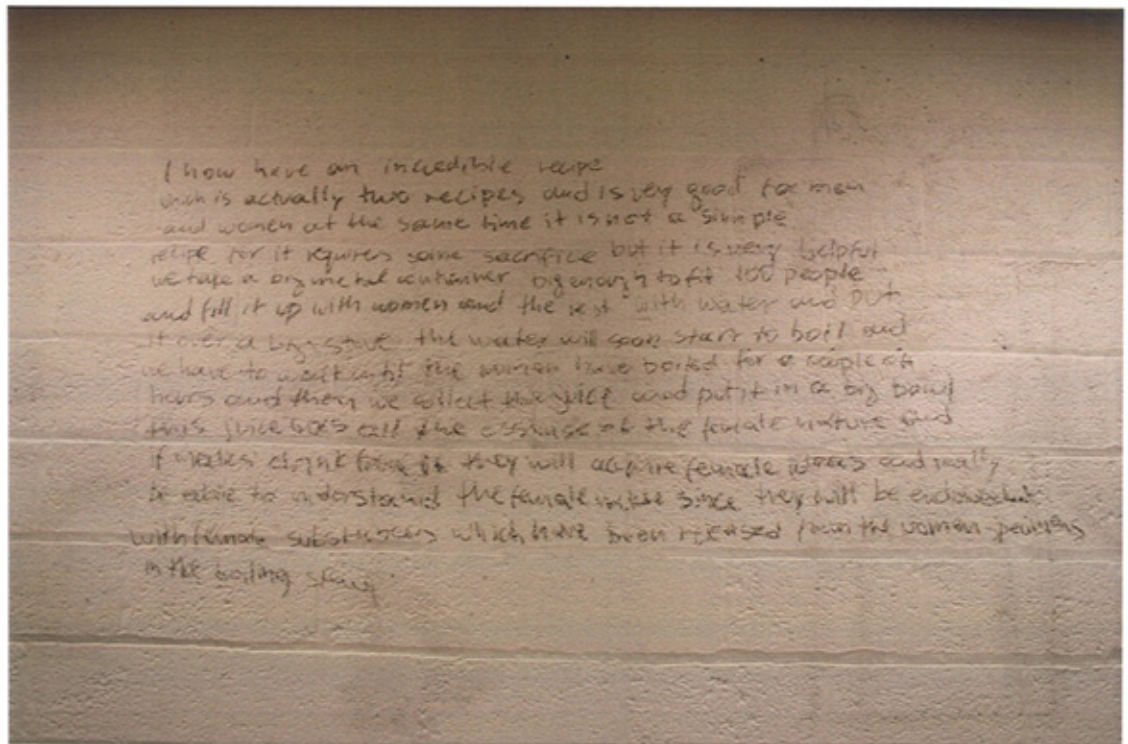 I now have an incredible recipe
which is actually two recipes and is very good for men
and women at the same time it is not a simple
recipe for it requires some sacrifice but it is very helpful
we take a big metal container big enough to fit 100 people
and fill it up with women and the rest with water and put
it over a big stove the water will soon start to boil and
we have to wait until the women have boiled for a couple of
hours and then we collect the juice and put it in a big bowl
this juice call the essence of the female nature and
if males drink from it they will acquire female ideas and really
be able to understand the female nature since they will be endowed
with female substances which have been released from the women
in the boiling